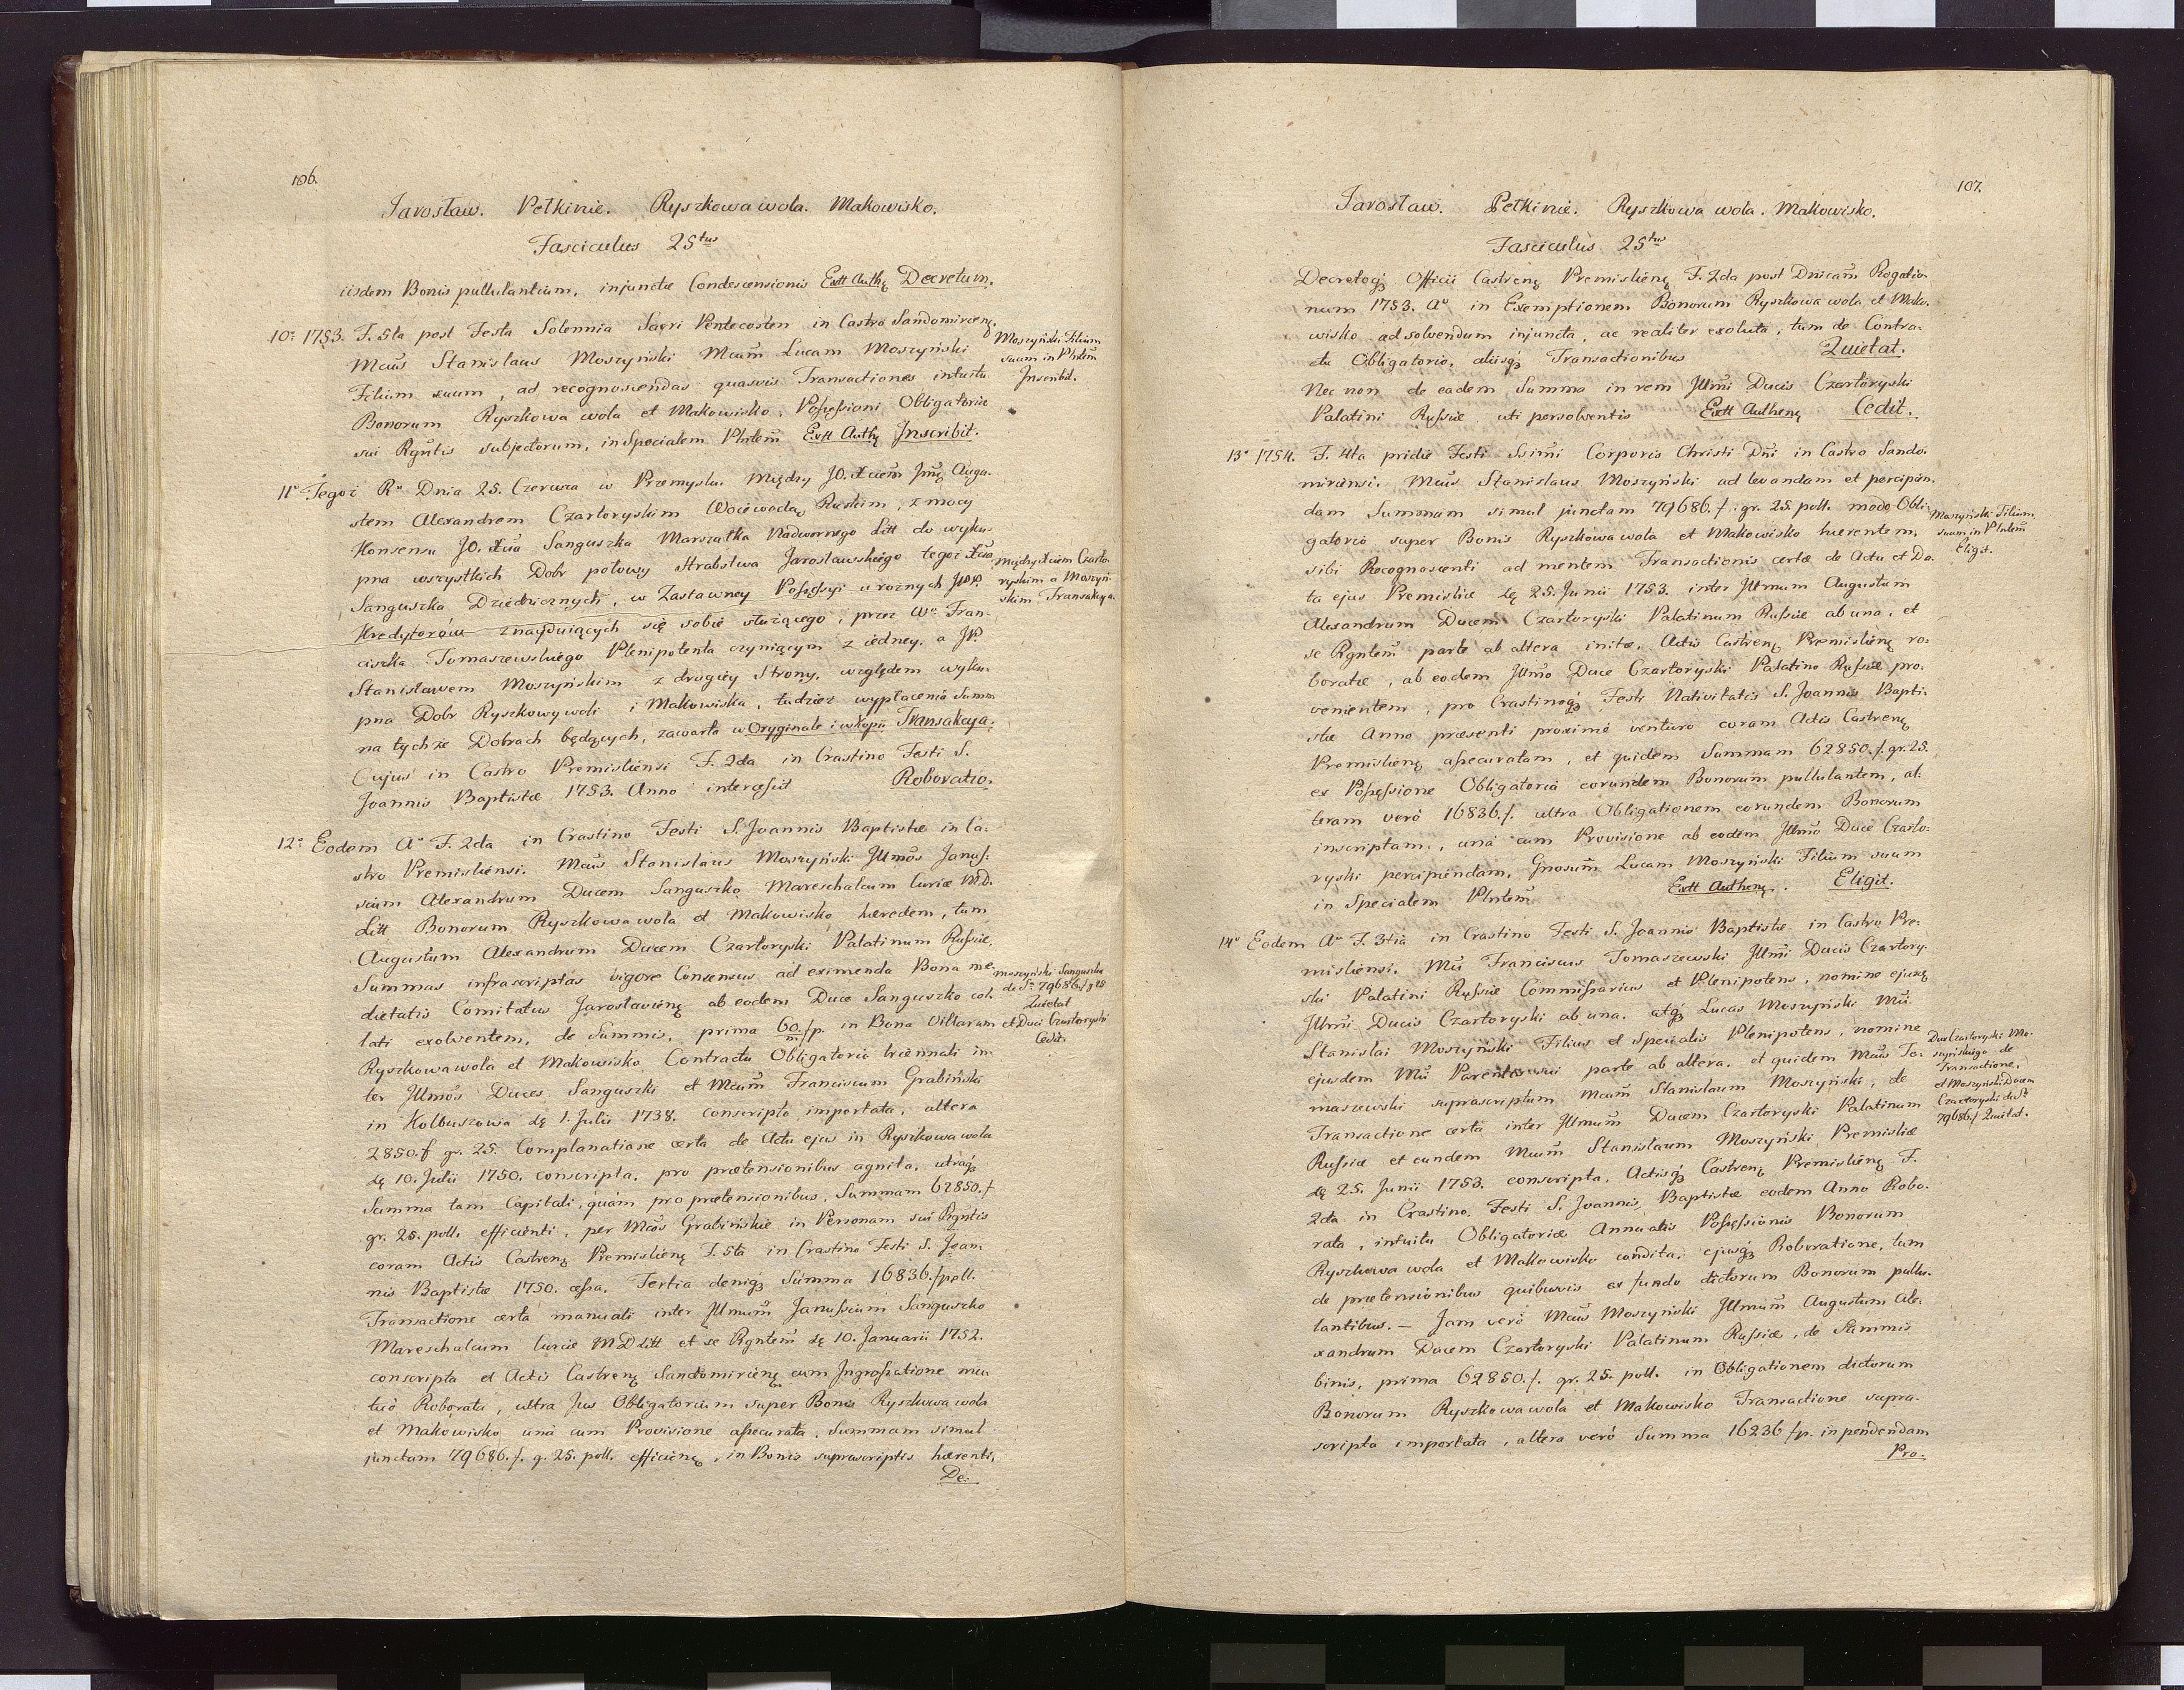 106.
Jarosław. Pełkinie. Ryszkowa wola. Makowisko.
Fasciculus 25tus
iisdem Bonis pullulantium, injunctæ Condescensionis Extt Authę Decretum.
10o 1753. F. 5ta post Festa Solennia Sacri Pentecosten in Castro Sandomirienę
Mcus Stanislaus Moszyński Mcum Lucam Moszyński
Filium suum, ad recognoscendas quasvis Transactiones intuitu
Bonorum Ryszkowa wola et Makowisko, Possessioni Obligatoriæ
sui Rgntis subjectorum, in Specialem Plntem Extt Authę Inscribit.
Moszyński Filium
suum in Plntem
Inscribit.
11o Tegoż Ru Dnia 25. Czerwca w Przemyslu. Między JO. Xciem Jmę Augu-
stem Alexandrem Czartoryskim Woiewodą Ruskim, z mocy
Konsensu JO. Xcia Sanguszka Marszałka Nadwornego Litt do wyku-
pna wszystkich Dobr połowy Hrabstwa Jarosławskiego tegoż Xcia
Sanguszka Dziedzicznych, w Zastawney Possessyi u rożnych JWP.
Kredytorów znayduiących się sobie służącego, przez Wo Fran-
ciszka Tomaszewskiego Plenipotenta czyniącym z iedney, a JP.
Stanisławem Moszyńskim z drugiey Strony, względem wyku-
pna Dobr Ryszkowywoli i Makowiska, tudzież wypłacenia Summ
na tychże Dobrach będących, zawarta w Oryginale i w Kopii Transakcya.
Cujus in Castro Premisliensi F. 2da in Crastino Festi S.
Joannis Baptistæ 1753. Anno intercessit Roboratio.
Między Xciem Czarto-
ryskim a Moszyń-
skim Transakcya.
12o Eodem Ao F. 2da in Crastino Festi S. Joannis Baptistæ in Ca-
stro Premisliensi. Mcus Stanislaus Moszyński Illmos Janus-
sium Alexandrum Ducem Sanguszko Mareschalcum Curiæ M.D.
Litt Bonorum Ryszkowa wola et Makowisko hæredem, tum
Augustum Alexandrum Ducem Czartoryski Palatinum Russiæ,
Summas infrascriptas vigore Consensus ad eximenda Bona me-
dietatis Comitatus Jaroslavienę ab eodem Duce Sanguszko col-
lati exolventem, de Summis, prima 60/m f p. in Bona Villarum
Ryszkowa wola et Makowisko Contractu Obligatorio triennali in-
ter Illmos Duces Sanguszki et Mcum Franciscum Grabiński
in Kolbuszowa dę 1. Julii 1738. conscripto importata, altera
2850. f gr. 25. Complanatione certa de Actu ejus in Ryszkowa wola
dę 10. Julii 1750. conscripta, pro prætensionibus agnita, utraqȝ
Summa tam Capitali, quàm pro prætensionibus, Summam 62850. f
gr. 25. poll. efficienti, per Mcos Grabińskie in Personam sui Rgntis
coram Actis Castrenę Premislienę F. 5ta in Crastino Festi S. Joan-
nis Baptistæ 1750. cessa, Tertia deniqȝ Summa 16836. f poll.
Transactione certa manuali inter Illmum Janussium Sanguszko
Mareschalcum Curiæ MDLitt et se Rgntem dę 10. Januarii 1752.
conscripta et Actis Castrenę Sandomirienę cum Ingrossatione mu-
tuò Roborata, ultra Jus Obligatorium super Bonis Ryszkowa wola
et Makowisko unà cum Provisione assecurata, Summam simul
junctam 79686. f. g. 25. poll. efficienę, in Bonis suprascriptis hærenti,
De-
Moszyński Sanguszka
de Sa 79686. f g 25
Quietat
et Duci Czartoryski
Cedit.
107.
Jarosław. Pełkinie. Ryszkowa wola. Makowisko.
Fasciculus 25tus
Decretoqȝ Officii Castrenę Premislienę F. 2da post Dnicam Rogatio-
num 1753. Ao in Exemptionem Bonorum Ryszkowa wola et Mako-
wisko ad solvendum injuncta, ac realiter exoluta, tum de Contra-
ctu Obligatorio, aliisqȝ Transactionibus Quietat.
Nec non de eadem Summa in rem Illmi Ducis Czartoryski
Palatini Russiæ, uti persolventis Extt Authenę Cedit.
13o 1754. F. 4ta pridie Festi Ssimi Corporis Christi Dni in Castro Sando-
miriensi. Mcus Stanislaus Moszyński ad levandam et percipien-
dam Summam simul junctam 79686. f. gr. 25. poll. modo Obli-
gatorio super Bonis Ryszkowa wola et Makowisko hærentem,
sibi Recognoscenti ad mentem Transactionis certæ de Actu et Da-
ta ejus Premisliæ dę 25. Junii 1753. inter Illmum Augustum
Alexandrum Ducem Czartoryski Palatinum Russiæ ab una, et
se Rgntem parte ab altera initæ, Actis Castrenę Premislienę ro-
boratæ, ab eodem Illmo Duce Czartoryski Palatino Russiæ pro-
venientem, pro Crastinoqȝ Festi Nativitatis S. Joannis Bapti-
stæ Anno præsenti proximè venturo coram Actis Castrenę
Premislienę assecuratam, et quidem Summam 62850. f. gr. 25.
ex Possessione Obligatoria eorundem Bonorum pullulantem, al-
teram verò 16836. f. ultra Obligationem eorundem Bonorum
inscriptam, unà cum Provisione ab eodem Illmo Duce Czarto-
ryski percipiendam, Gnosum Lucam Moszyński Filium suum
in Specialem Plntem Extt Authenę. Eligit.
Moszyński Filium
suum in Plntem
Eligit.
14o Eodem Ao F. 3tia in Crastino Festi S. Joannis Baptistæ in Castro Pre-
misliensi. Mci Franciscus Tomaszewski Illmi Ducis Czartory-
ski Palatini Russiæ Commissarius et Plenipotens, nomine ejusdę
Illmi Ducis Czartoryski ab una, atqȝ Lucas Moszyński Mci
Stanislai Moszyński Filius et Specialis Plenipotens, nomine
ejusdem Mci Parentis sui parte ab altera, et quidem Mcus To-
maszewski suprascriptum Mcum Stanislaum Moszyński, de
Transactione certa inter Illmum Ducem Czartoryski Palatinum
Russiæ et eundem Mcum Stanislaum Moszyński Premisliæ
dę 25. Junii 1753. conscripta, Actisqȝ Castrenę Premislienę F.
2da in Crastino Festi S. Joannis Baptistæ eodem Anno Robo-
rata, intuitu Obligatoriæ Annualis Possessionis Bonorum
Ryszkowa wola et Makowisko condita, ejusqȝ Roboratione, tum
de prætensionibus quibusvis ex fundo dictorum Bonorum pullu-
lantibus. — Jam verò Mcus Moszyński Illmum Augustum Ale-
xandrum Ducem Czartoryski Palatinum Russiæ, de Summis
binis, prima 62850. f. gr. 25. poll. in Obligationem dictorum
Bonorum Ryszkowa wola et Makowisko Transactione supra-
scripta importata, altera verò Summa 16236 f p. in pendendam
Pro-
Dux Czartoryski Mo-
szyńskiego de
Transactione,
et Moszyński Ducem
Czartoryski de Sa
79686. f Quietat.